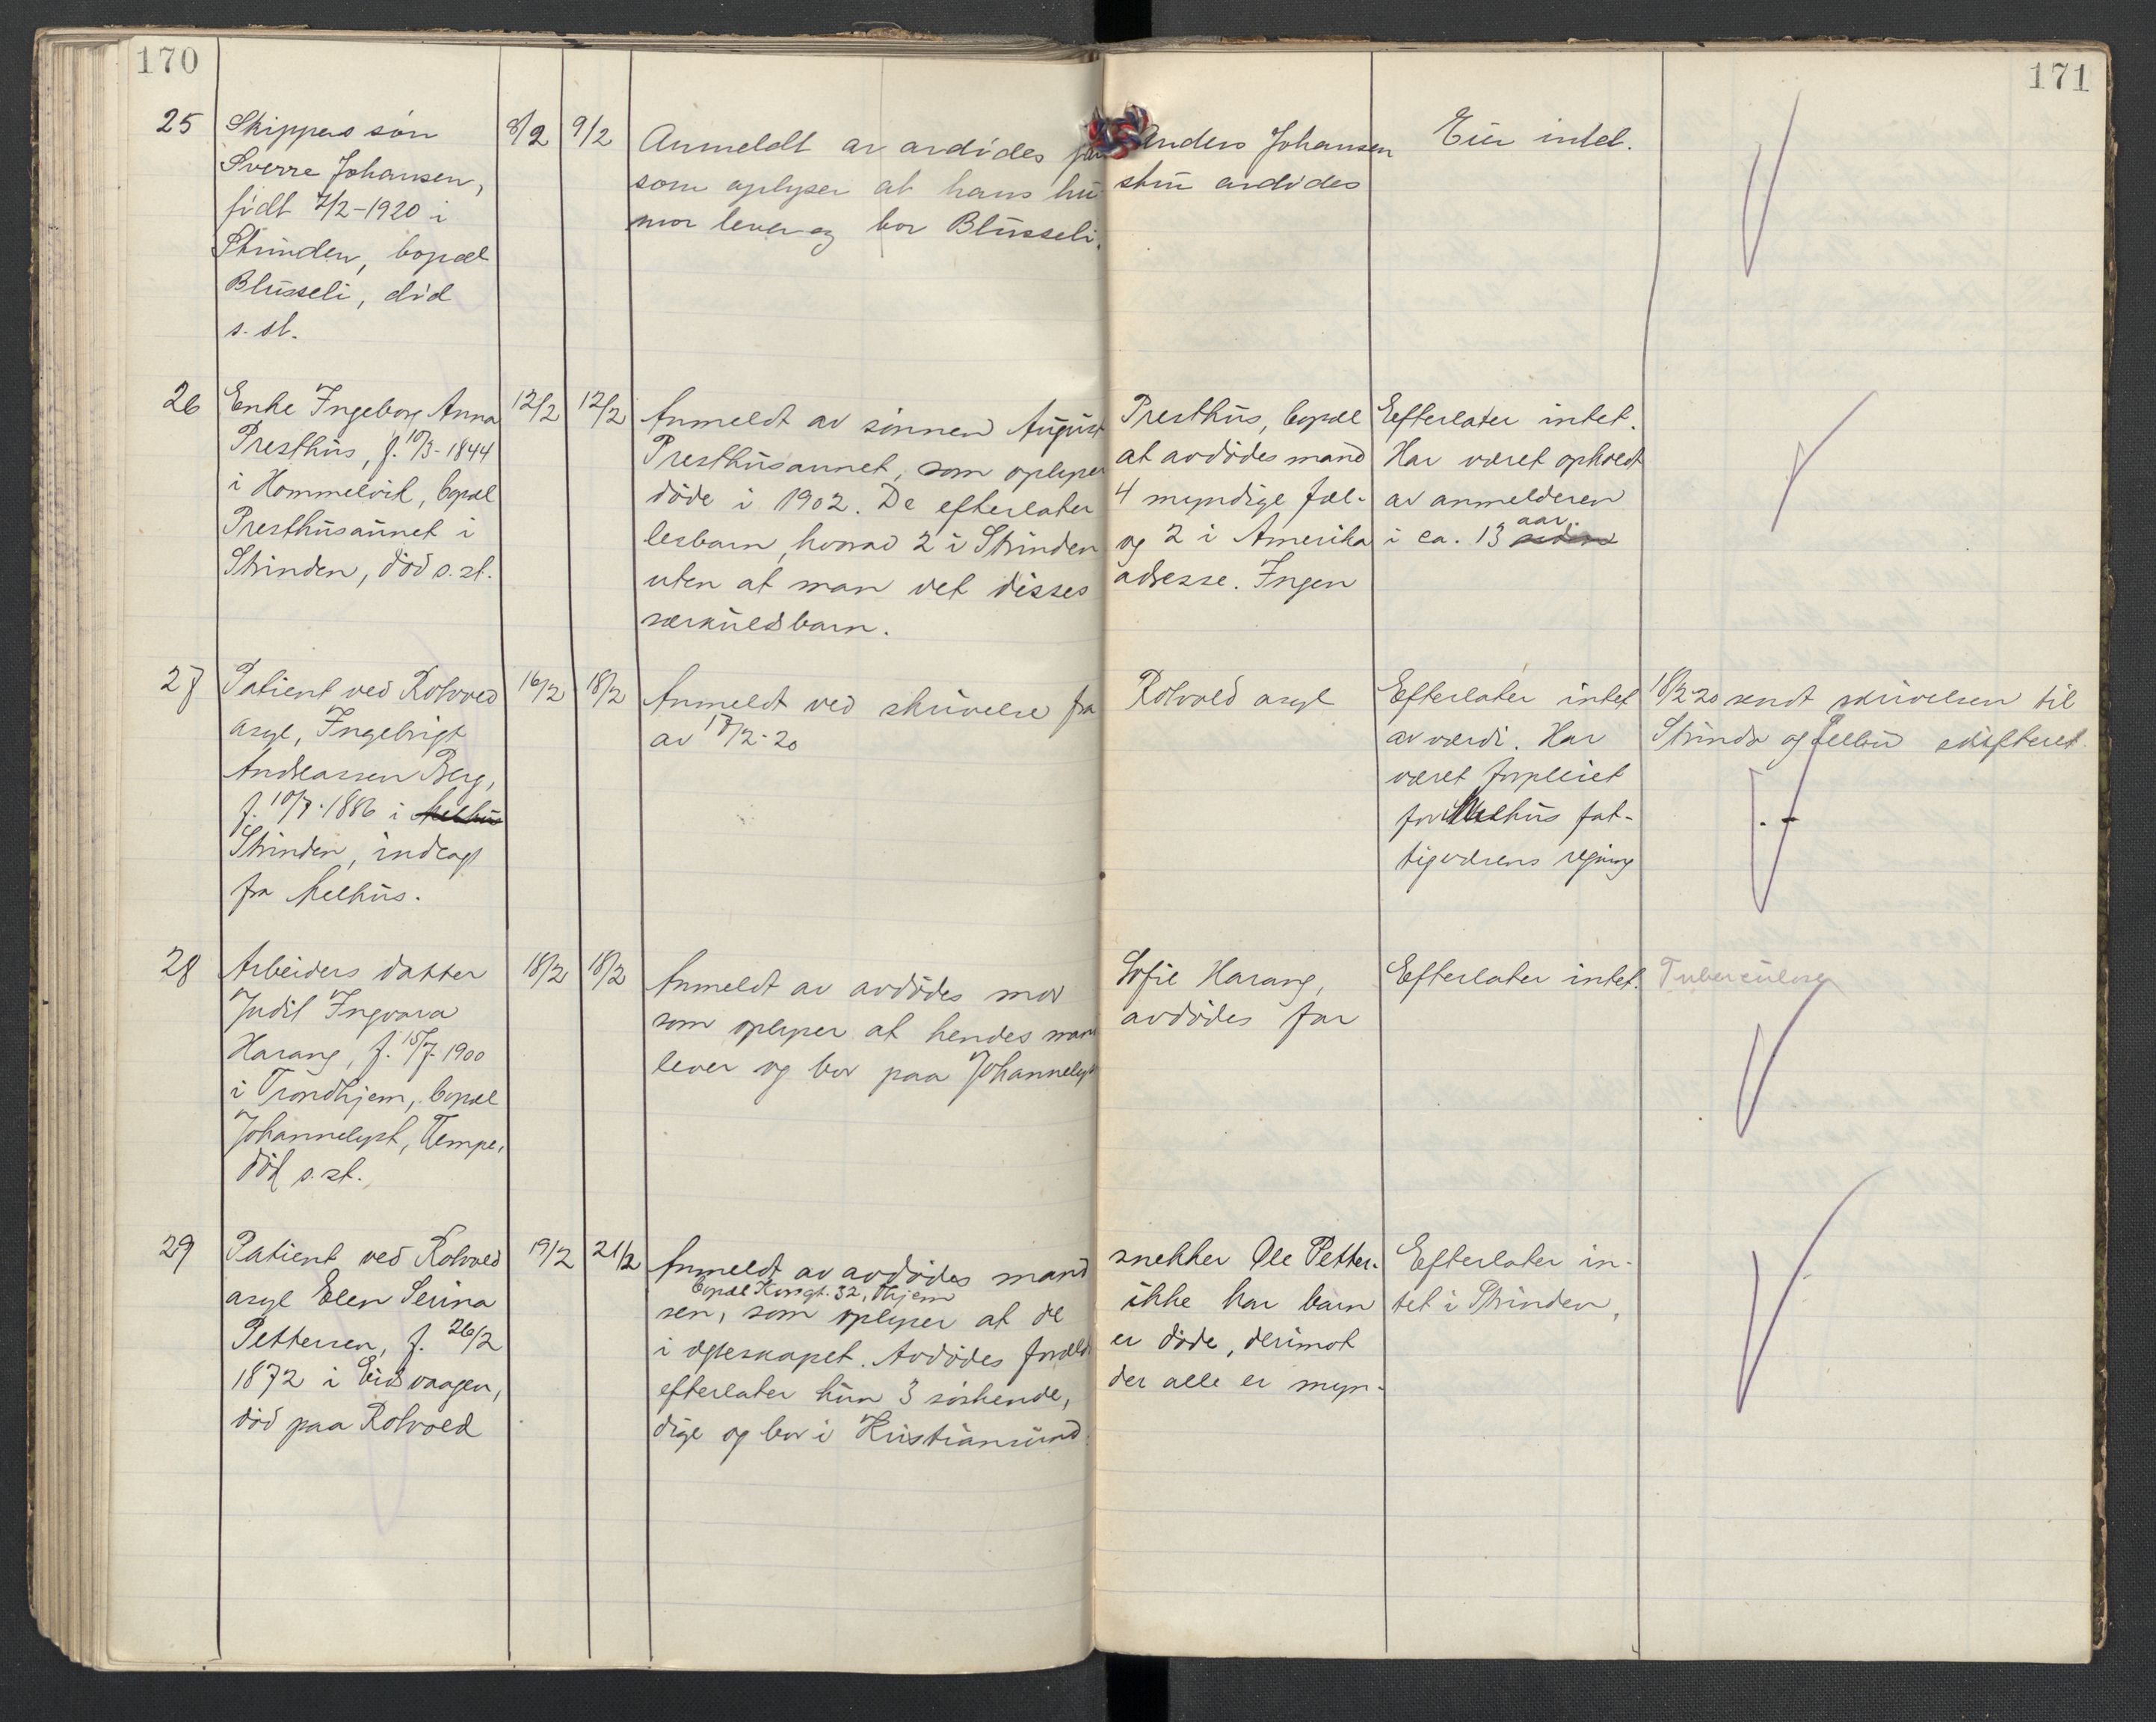 170
171
25
Skippers søn
Sverre Johansen,
født 7/2-1920 i
Strinden, bopæl
Blusseli, død
s. st.
8/2
9/2
Anmeldt av avdødes far Anders Johansen
som oplyser at hans hu- stru avdødes
mor lever og bor Blusseli.
Eier intet.
26
Enke Ingeborg Anna
Presthus, f. 10/3-1844
i Hommelvik, bopæl
Presthusaunet i
Strinden, død s. st.
12/2
12/2
Anmeldt av sønnen August Presthus, bopæl
Presthusaunet, som oplyser at avdødes mand
døde i 1902. De efterlater 4 myndige fæl-
lesbarn, hvorav 2 i Strinden og 2 i Amerika
uten at man vet disses adresse. Ingen
særkuldsbarn.
Efterlater intet.
Har været opholdt
av anmelderen
i ca. 13 aar.
27
Patient ved Rotvold
asyl, Ingebrigt
Andreassen Berg,
f. 10/7-1886 i Melhus
Strinden, indlagt
fra Melhus.
16/2
18/2
Anmeldt ved skrivelse fra Rotvold asyl
av 17/2-20
Efterlater intet
av værdi. Har
været forpleiet
for Melhus fat-
tigvæsens regning
18/2 20 sendt skrivelsen til
Strinda og Selbu skifteret.
28
Arbeiders datter
Judit Ingvara
Harang, f. 15/7-1900
i Trondhjem, bopæl
Johannelyst, Tempe,
død s. st.
18/2
18/2
Anmeldt av avdødes mor Sofie Harang,
som oplyser at hendes mand avdødes far
lever og bor paa Johannelyst
Efterlater intet.
Tuberculose
29
Patient ved Rotvold
asyl Elen Serina
Pettersen, f. 26/2
1872 i Eidsvaagen,
død paa Rotvold
19/2
21/2
Anmeldt av avdødes mand snekker Ole Petter-
bopæl Kongt. 32, Thjem
sen, som oplyser at de ikke har barn
i egteskapet. Avdødes foreldre er døde, derimot
efterlater hun 3 søskende, der alle er myn-
dige og bor i Kristiansund.
Efterlater in-
tet i Strinden,